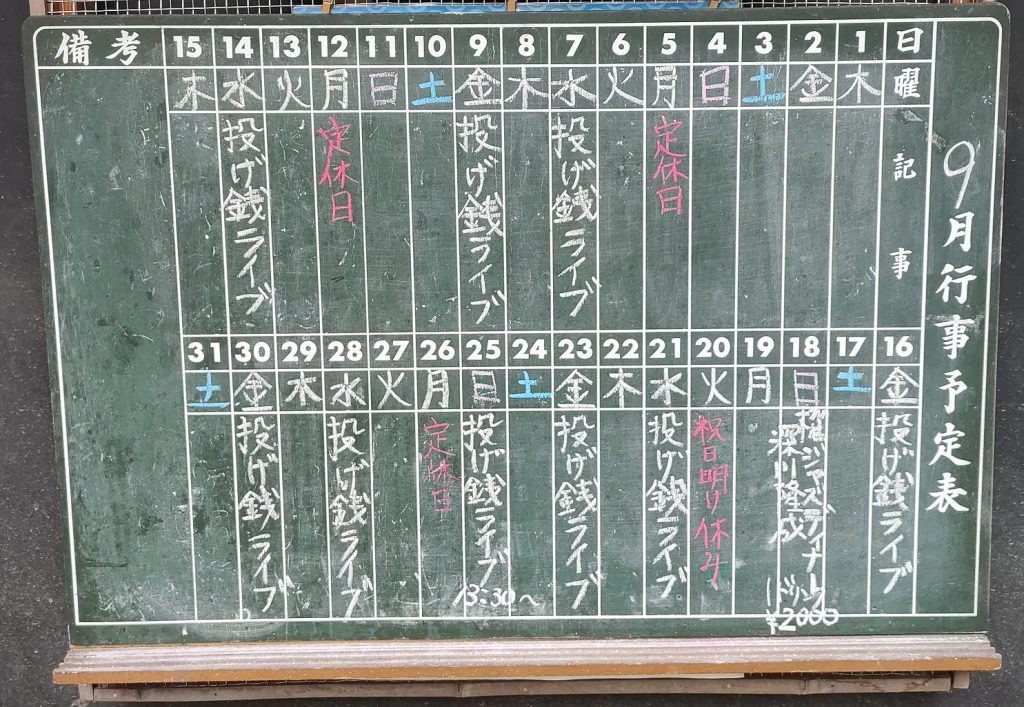 9月行事予定表
日 1 2 3 4 5 6 7 8 9 10 11 12 13 14 15 備考
曜 木 金 土 日 月 火 水 木 金 土 日 月 火 水 木
記事
定休日
投げ銭ライブ
投げ銭ライブ
定休日
投げ銭ライブ
16 17 18 19 20 21 22 23 24 25 26 27 28 29 30 31
金 土 日 月 火 水 木 金 土 日 月 火 水 木 金 土
投げ銭ライブ
ジャズライナー
深川隆成
1ドリンク
¥2000
祝日明け休み
投げ銭ライブ
投げ銭ライブ
投げ銭ライブ
13:30〜
定休日
投げ銭ライブ
投げ銭ライブ